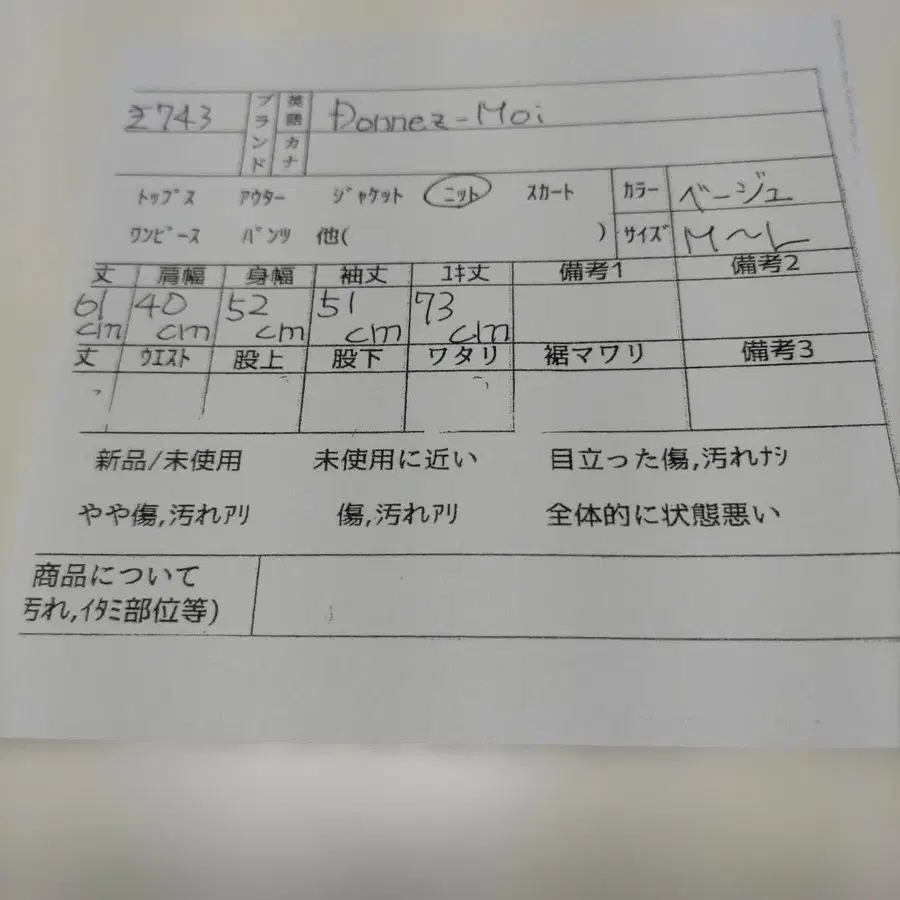 Z743 ブランド 英語 Donnez-Moi
カナ
トップス アウター ジャケット ニット スカート カラー ベージュ
ワンピース パンツ 他( ) サイズ M〜L
丈 肩幅 身幅 袖丈 ユキ丈 備考1 備考2
61cm 40cm 52cm 51cm 73cm
丈 ウエスト 股上 股下 ワタリ 裾マワリ 備考3
新品/未使用 未使用に近い 目立った傷,汚れナシ
やや傷,汚れアリ 傷,汚れアリ 全体的に状態悪い
商品について
汚れ,イタミ部位等)